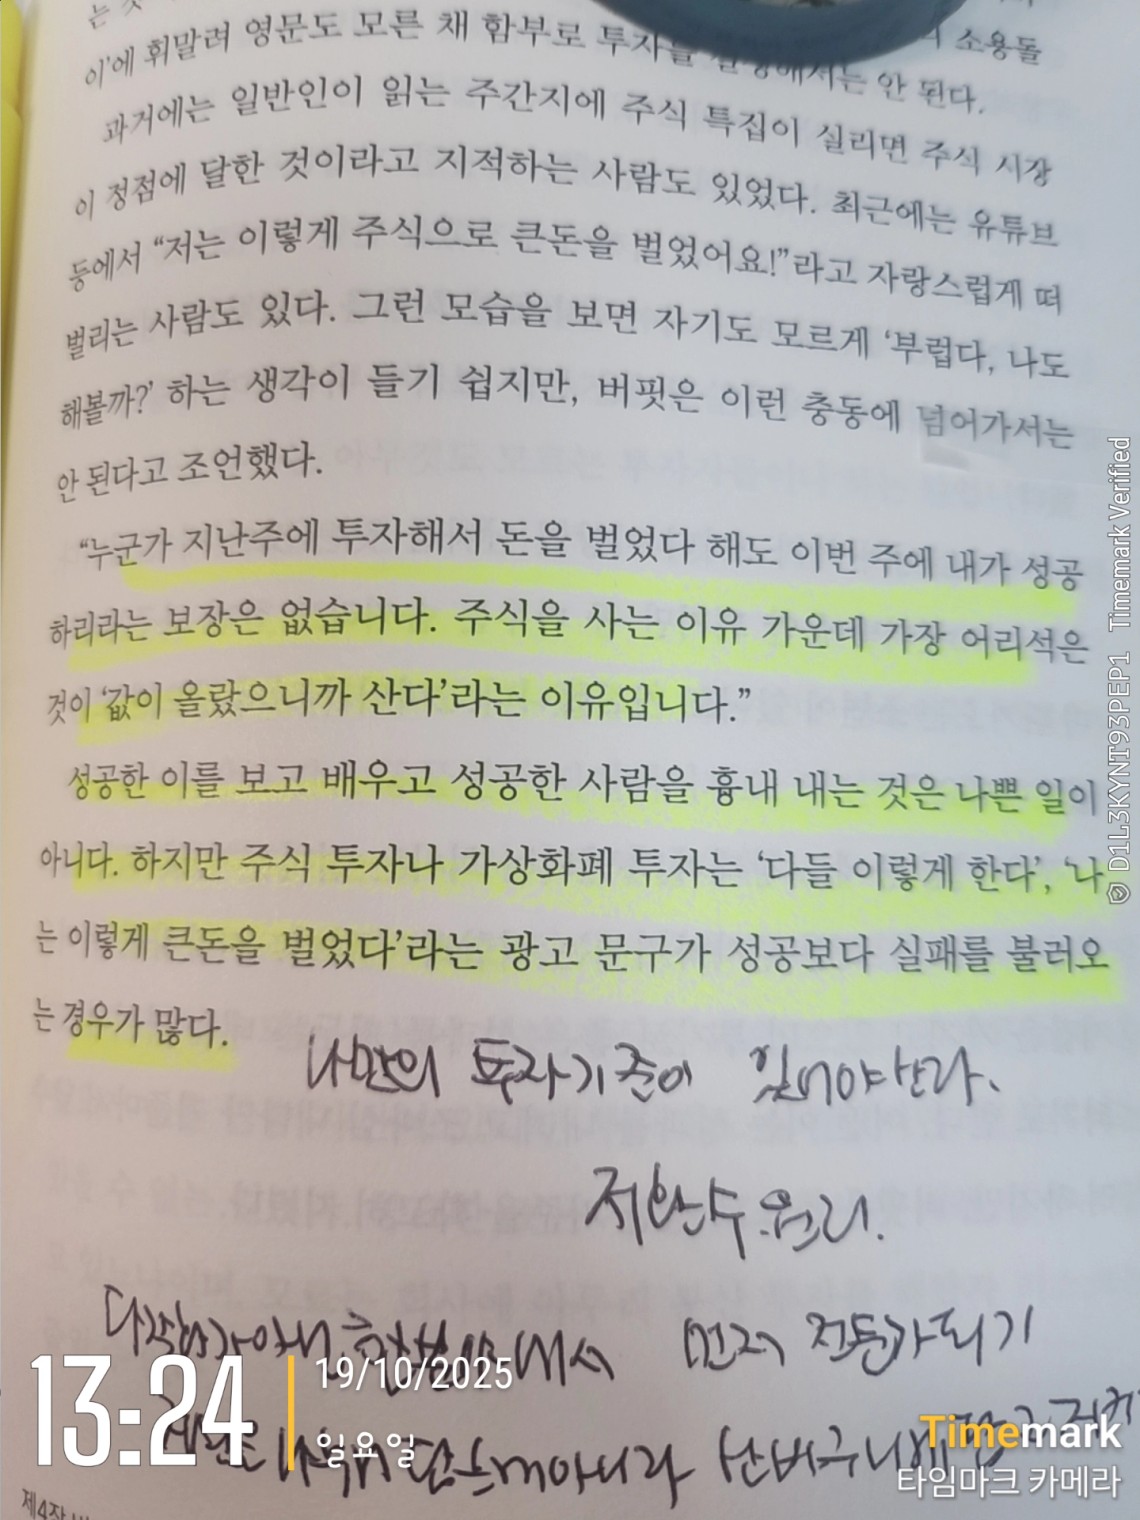 는 것
소용돌
이'에 휘말려 영문도 모른 채 함부로 투자를 결정해서는 안 된다.
과거에는 일반인이 읽는 주간지에 주식 특집이 실리면 주식 시장
이 정점에 달한 것이라고 지적하는 사람도 있었다. 최근에는 유튜브
등에서 “저는 이렇게 주식으로 큰돈을 벌었어요!”라고 자랑스럽게 떠
벌리는 사람도 있다. 그런 모습을 보면 자기도 모르게 ‘부럽다, 나도
해볼까?’ 하는 생각이 들기 쉽지만, 버핏은 이런 충동에 넘어가서는
안 된다고 조언했다.
“누군가 지난주에 투자해서 돈을 벌었다 해도 이번 주에 내가 성공
하리라는 보장은 없습니다. 주식을 사는 이유 가운데 가장 어리석은
것이 ‘값이 올랐으니까 산다’라는 이유입니다.”
성공한 이를 보고 배우고 성공한 사람을 흉내 내는 것은 나쁜 일이
아니다. 하지만 주식 투자나 가상화폐 투자는 ‘다들 이렇게 한다’, ‘나
는 이렇게 큰돈을 벌었다’라는 광고 문구가 성공보다 실패를 불러오
는 경우가 많다.
나만의 투자기준이 있어야한다.
원리.
먼저 전문가되기
아니라 한바구니에
13:24
19/10/2025
일요일
Timemark
타임마크 카메라
제4장
© D1L3KYNT93PEP1 Timemark Verified